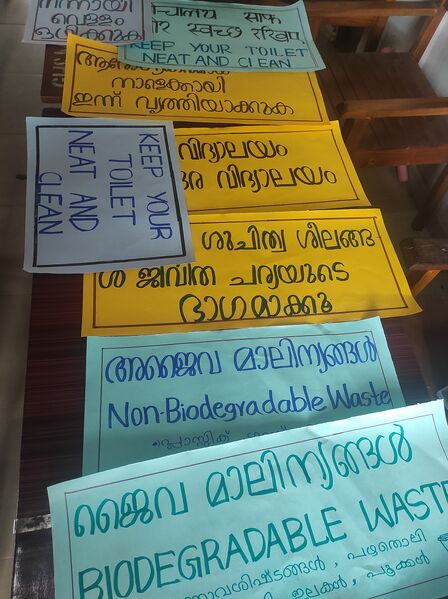 നന്നായി
വെള്ളം
ഒഴിക്കുക
साफ
स्वच्छ रखिए
KEEP YOUR TOILET
NEAT AND CLEAN
നാളേക്കായി
ഇന്ന് വൃത്തിയാക്കുക
KEEP YOUR
TOILET
NEAT AND
CLEAN
വിദ്യാലയം
വിദ്യാലയം
ശുചിത്വ ശീലങ്ങ
ൾ ജീവിത ചര്യയുടെ
ഭാഗമാക്കൂ
അജൈവ മാലിന്യങ്ങൾ
Non-Biodegradable Waste
പ്ലാസ്റ്റിക്
ജൈവ മാലിന്യങ്ങൾ
BIODEGRADABLE WASTE
പഴത്തൊലി
ഇലകൾ, പൂക്കൾ